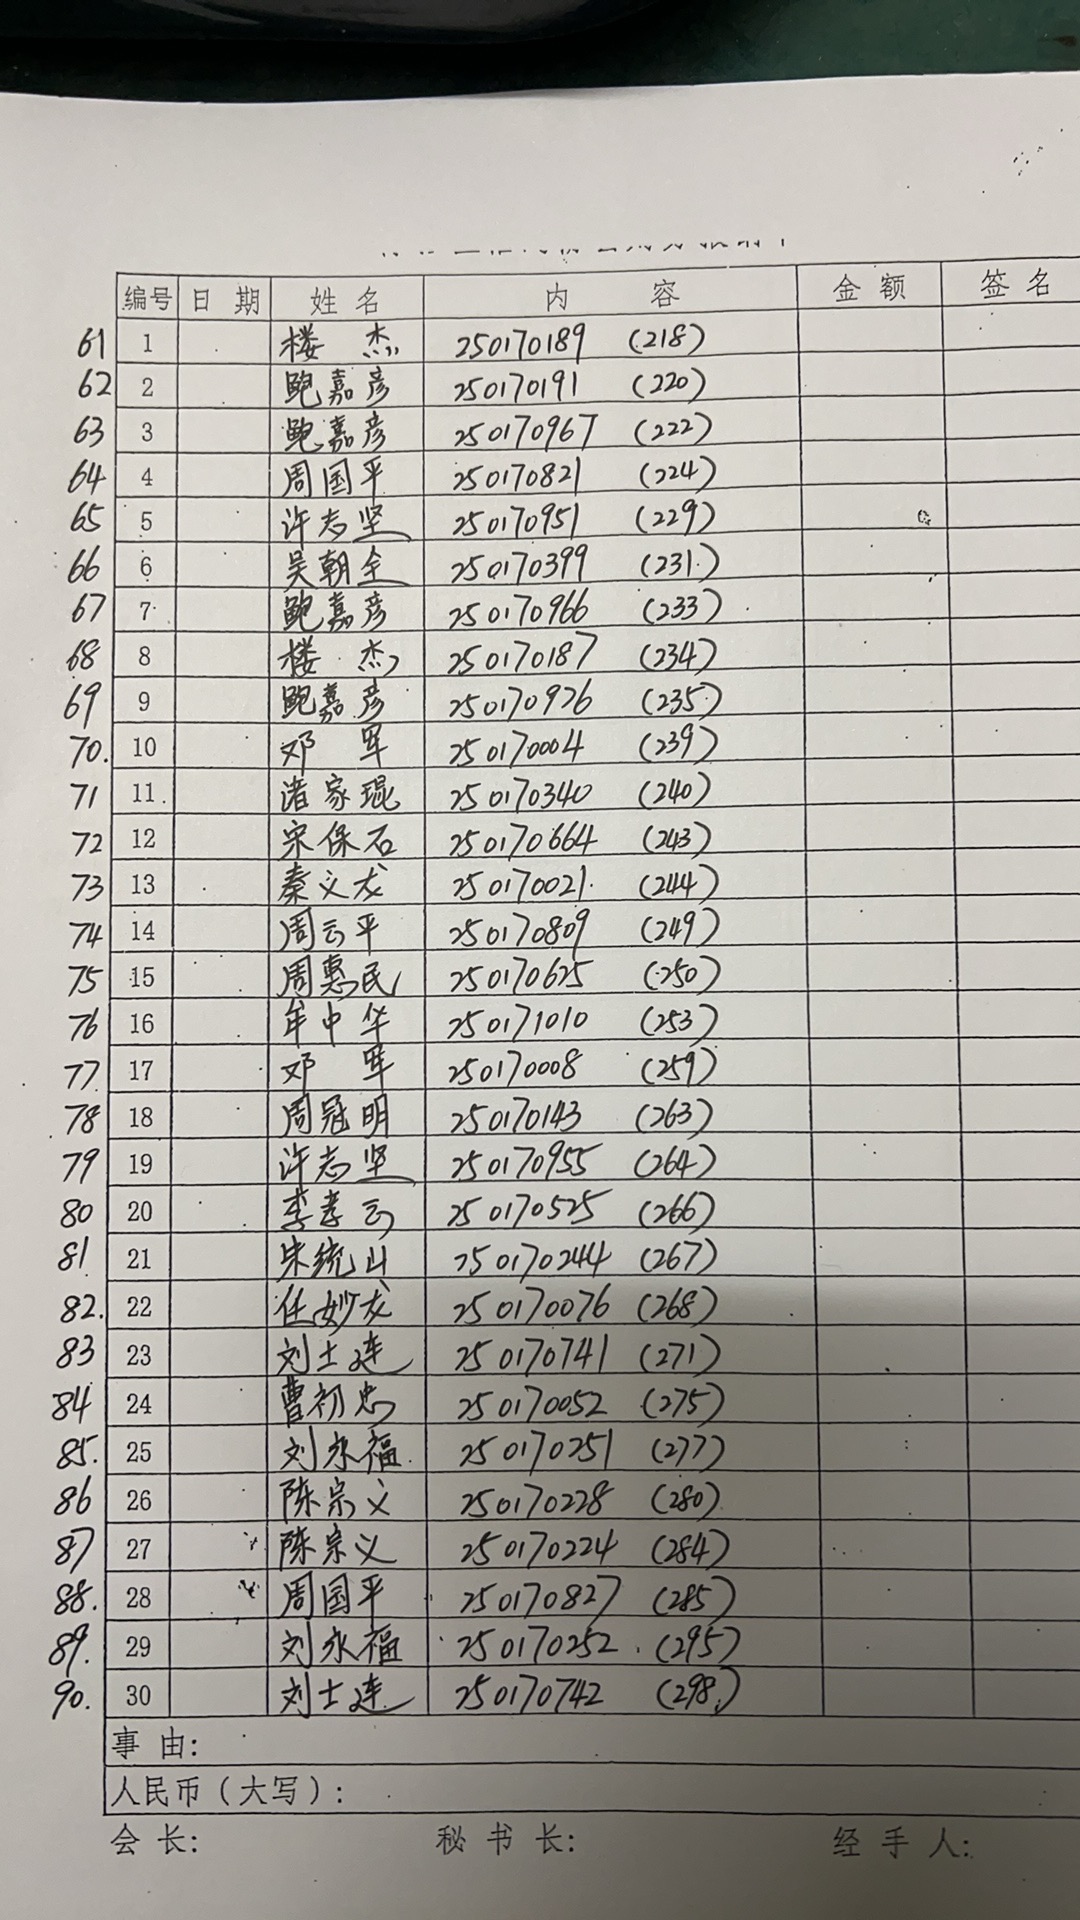 编号 日 期 姓 名 内 容 金 额 签 名
61 1 楼 杰 250170189 (218)
62 2 鲍嘉彦 250170191 (220)
63 3 鲍嘉彦 250170967 (222)
64 4 周国平 250170821 (224)
65 5 许志坚 250170951 (229)
66 6 吴朝全 250170399 (231)
67 7 鲍嘉彦 250170966 (233)
68 8 楼 杰 250170187 (234)
69 9 鲍嘉彦 250170926 (235)
70. 10 邓 军 250170004 (239)
71 11 诸家琨 250170340 (240)
72 12 宋保石 250170664 (243)
73 13 秦义龙 250170021 (244)
74 14 周云平 250170809 (249)
75 15 周惠民 250170625 (250)
76 16 牟中华 250171010 (253)
77 17 邓 军 250170008 (259)
78 18 周冠明 250170143 (263)
79 19 许志坚 250170955 (264)
80 20 李孝云 250170525 (266)
81 21 朱统山 250170244 (267)
82. 22 任妙龙 250170076 (268)
83 23 刘士连 250170741 (271)
84 24 曹初忠 250170052 (275)
85. 25 刘永福 250170251 (277)
86 26 陈宗义 250170228 (280)
87 27 陈宗义 250170224 (284)
88. 28 周国平 250170827 (285)
89. 29 刘永福 250170252 (295)
90. 30 刘士连 250170742 (298)
事 由:
人民币(大写):
会 长: 秘 书 长: 经 手 人: